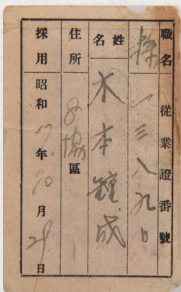 職名 從業證番號
一三八九〇
姓名
木本鍾成
住所
協區
採用昭和17年10月29日